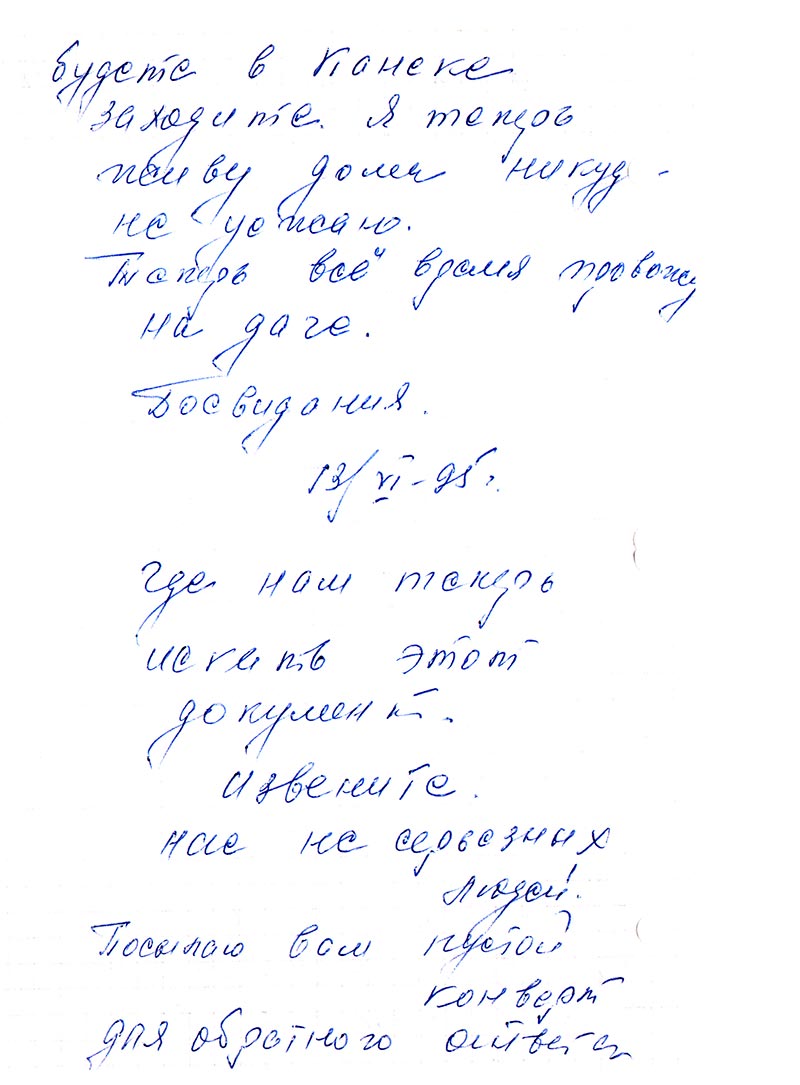 будете в Канске
заходите. Я теперь
живу дома никуд-
не уезжаю.
Теперь всё время провожу
на даче.
Досвидания.
13/VI-95г.
Где нам теперь
искать этот
документ.
Извените.
нас не серьезных
людей.
Посылаю вам пустой
конверт
для обратного ответа